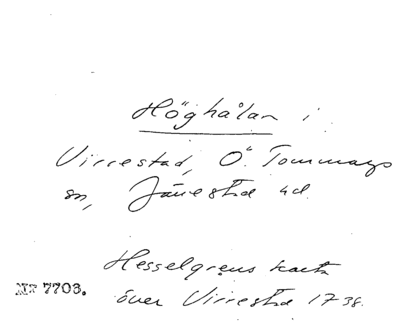 Höghålan i
Virrestad, Ö. Tommarps
sn, Järrestad hd.
Hesselgrens karta
över Virrestad 1738.
Nr 7703.